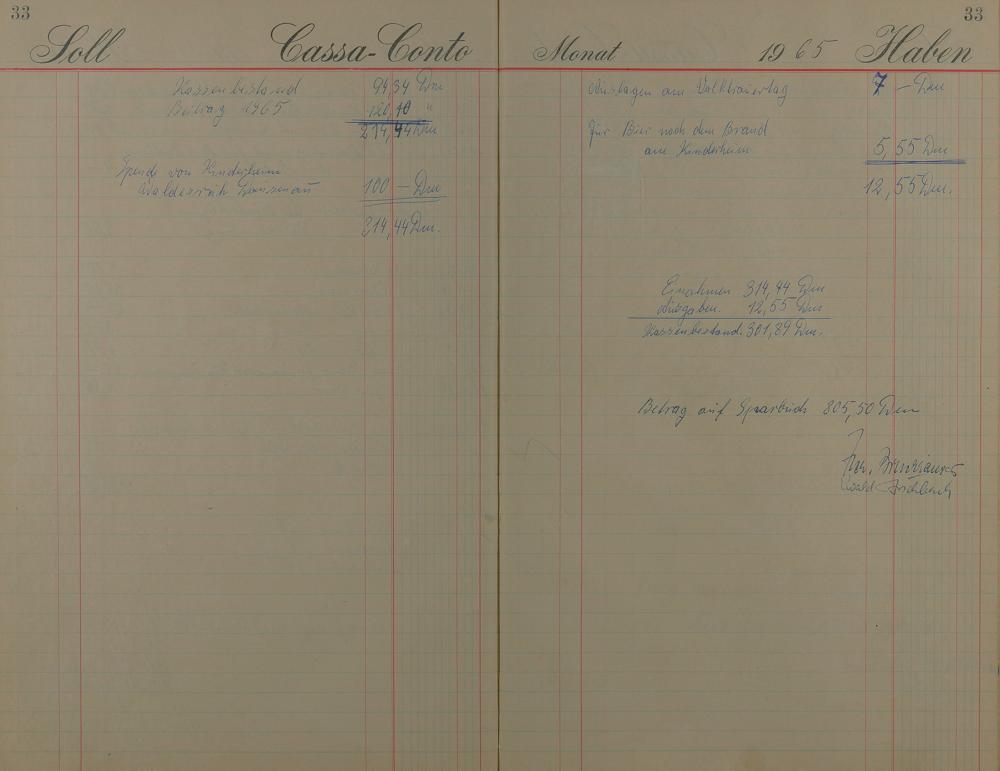 33
Soll Cassa-Conto
Kassenbestand 94,34 Dm
Beitrag 1965 120,10 "
214,44 Dm
Spende von Kinderheim
100 — Dm
314,44 Dm.
33
Monat 1965 Haben
Auslagen am Volktrauertag 7 — Dm
Für Bier nach dem Brand
am Kinderheim 5,55 Dm
12,55 Dm.
Einnahmen 314,44 Dm
Ausgaben. 12,55 Dm
Kassenbestand. 301,89 Dm.
Betrag auf Sparbuch 805,50 Dm